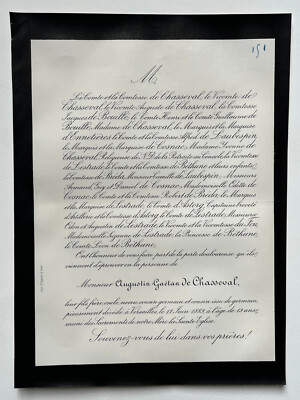 151
M
Le Comte et la Comtesse de Chasseval, le Vicomte de
Chasseval, le Vicomte Auguste de Chasseval, la Comtesse
Jacques de Bouillé, le Comte Henri et le Comte Guillaume de
Bouillé, Madame de Chasseval, le Marquis et la Marquise
d'Ennetières, le Comte et la Comtesse Alfred de Laubespin,
le Marquis et la Marquise de Cosnac, Madame Yvonne de
Chasseval, Religieuse du de la Retraite au Cénacle, la Vicomtesse
de Lestrade, le Comte et la Comtesse de Béthune et leurs enfants,
la Comtesse de Bréda, Monsieur Camille de Laubespin, Messieurs
Armand, Guy et Daniel de Cosnac, Mademoiselle Odette de
Cosnac, le Comte et la Comtesse Robert de Bréda, le Marquis
et la Marquise de Lestrade, le Comte d'Astorg, Capitaine breveté
d'Artillerie et la Comtesse d'Astorg, le Comte de Lestrade, Messieurs
Odon et Augustin de Lestrade, le Vicomte et la Vicomtesse du
Mademoiselle Suzanne de Lestrade, la Princesse de Béthune,
le Comte Léon de Béthune,
Ont l'honneur de vous faire part de la perte douloureuse qu'ils
viennent d'éprouver en la personne de
Monsieur Augustin Gaëtan de Chasseval,
leur fils, frère, oncle, neveu, cousin germain et cousin issu de germain,
pieusement décédé à Versailles, le 12 Juin 1889, à l'âge de 19 ans,
muni des Sacrements de notre Mère la Sainte Église.
Souvenez-vous de lui dans vos prières!